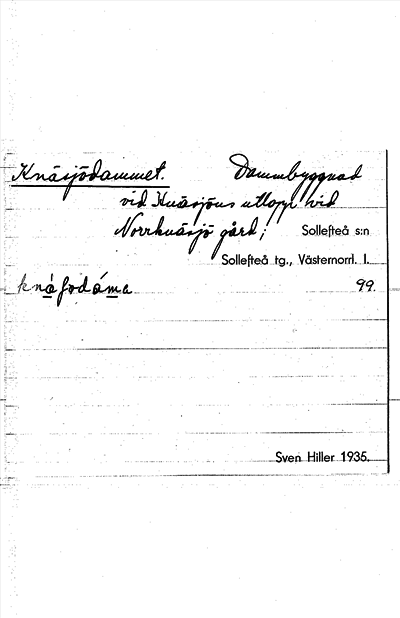 Knäsjödammet. Dammbyggnad
vid Knäsjöns utlopp vid
Norrknäsjö gård; Sollefteå s:n
Sollefteå tg., Västernorrl. l.
99.
Sven Hiller 1935.